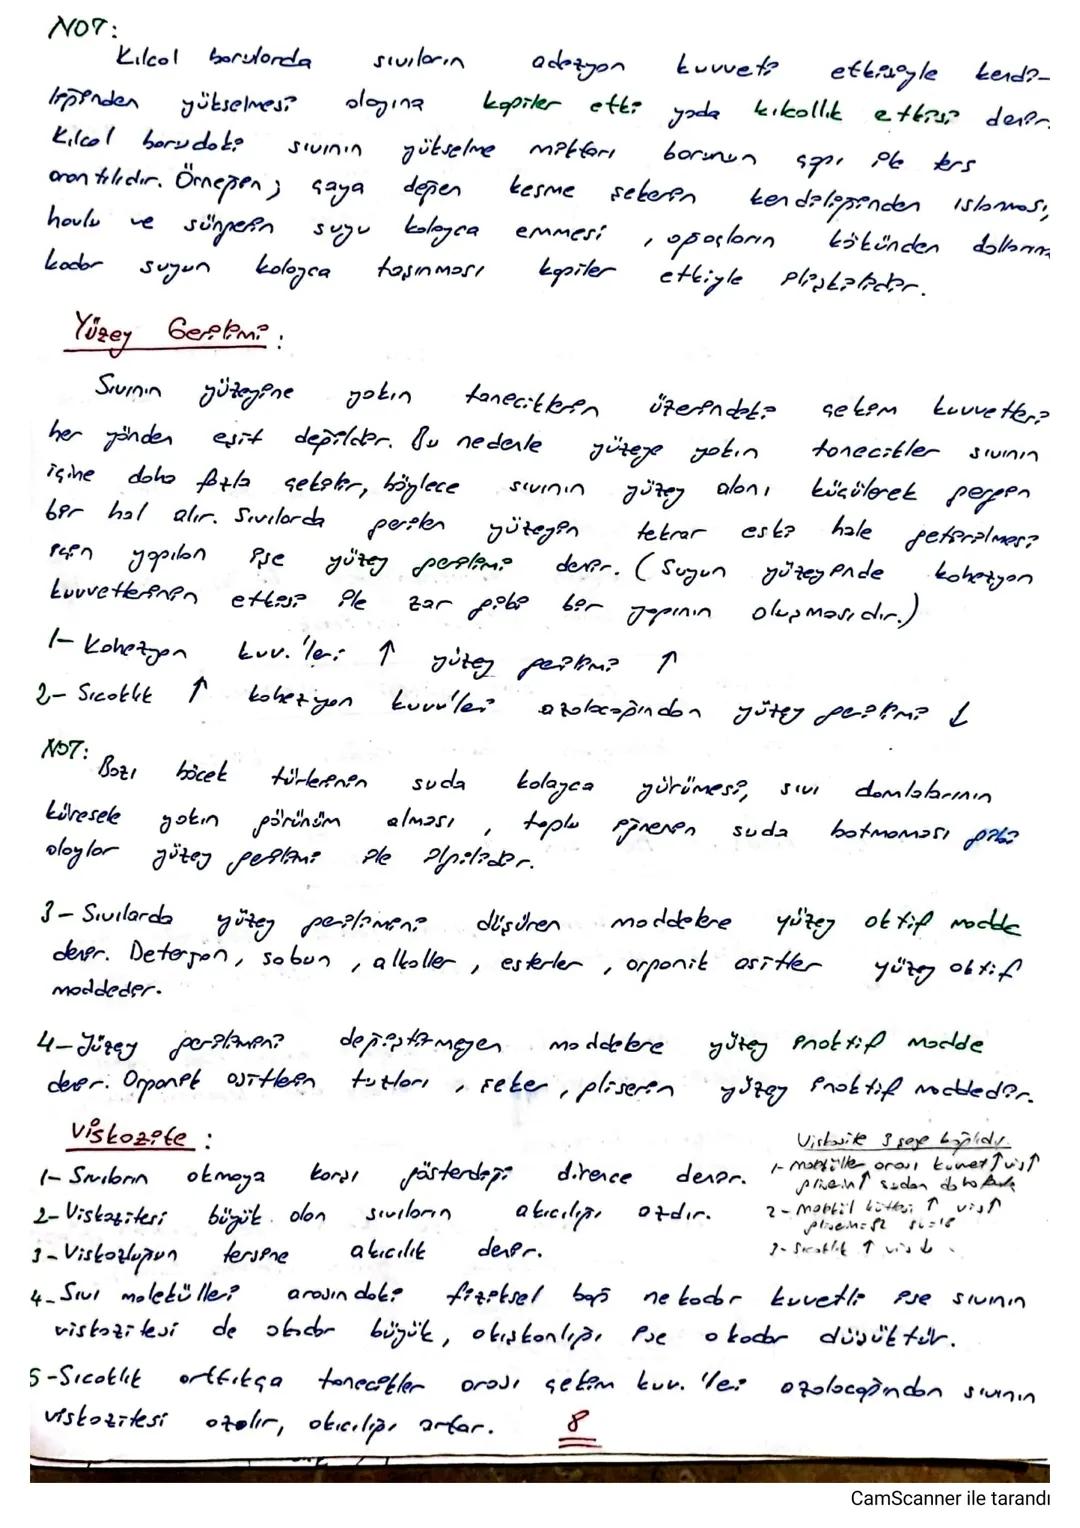 NOT:
Kılcal borularda sıvıların adezyon kuvveti etkisiyle kendi-
liğinden yükselmesi olayına kapiler etki yada kılcallık etkisi denir.
Kılcal borudaki sıvının yükselme miktarı borunun çapı ile ters
orantılıdır. Örneğin; çaya değen kesme şekerin kendiliğinden ıslanması,
havlu ve süngerin suyu kolayca emmesi, ağaçların kökünden dallarına
kadar suyun kolayca taşınması kapiler etkiyle ilişkilidir.
Yüzey Gerilimi:
Sıvının yüzeyine yakın taneciklerin üzerindeki çekim kuvvetleri
her yönden eşit değildir. Bu nedenle yüzeye yakın tanecikler sıvının
içine daha fazla çekilir, böylece sıvının yüzey alanı küçülerek gergin
bir hal alır. Sıvılarda gerilen yüzeyin tekrar eski hale getirilmesi
için yapılan işe yüzey gerilimi denir. (Suyun yüzeyinde kohezyon
kuvvetlerinin etkisi ile zar gibi bir yapının oluşmasıdır.)
1- Kohezyon kuv.'leri ↑ yüzey gerilimi ↑
2- Sıcaklık ↑ kohezyon kuvv'leri azalacağından yüzey gerilimi ↓
NOT:
Bazı böcek türlerinin suda kolayca yürümesi, sıvı damlalarının
küresele yakın görünüm alması, toplu iğnenin suda batmaması gibi
olaylar yüzey gerilimi ile ilgilidir.
3- Sıvılarda yüzey gerilimini düşüren maddelere yüzey aktif madde
denir. Deterjan, sabun, alkoller, esterler, organik asitler yüzey aktif
maddedir.
4- Yüzey gerilimini değiştirmeyen maddelere yüzey inaktif madde
denir. Organik asitlerin tuzları, şeker, gliserin yüzey inaktif maddedir.
Viskozite:
1- Sıvıların akmaya karşı gösterdiği dirence denir.
2- Viskozitesi büyük olan sıvıların akıcılığı azdır.
3- Viskozluğun tersine akıcılık denir.
Viskozite 3 şeye bağlıdır.
1- Moleküller arası kuvvet ↑ vis ↑
gliserin ↑ sudan daha fazla
2- Molekül kütlesi ↑ vis ↑
3- Sıcaklık ↑ vis ↓
4- Sıvı molekülleri arasındaki fiziksel bağ ne kadar kuvvetli ise sıvının
viskozitesi de o kadar büyük, akışkanlığı ise o kadar düşüktür.
5- Sıcaklık arttıkça tanecikler arası çekim kuv.'leri azalacağından sıvının
viskozitesi azalır, akıcılığı artar.
8
CamScanner ile tarandı